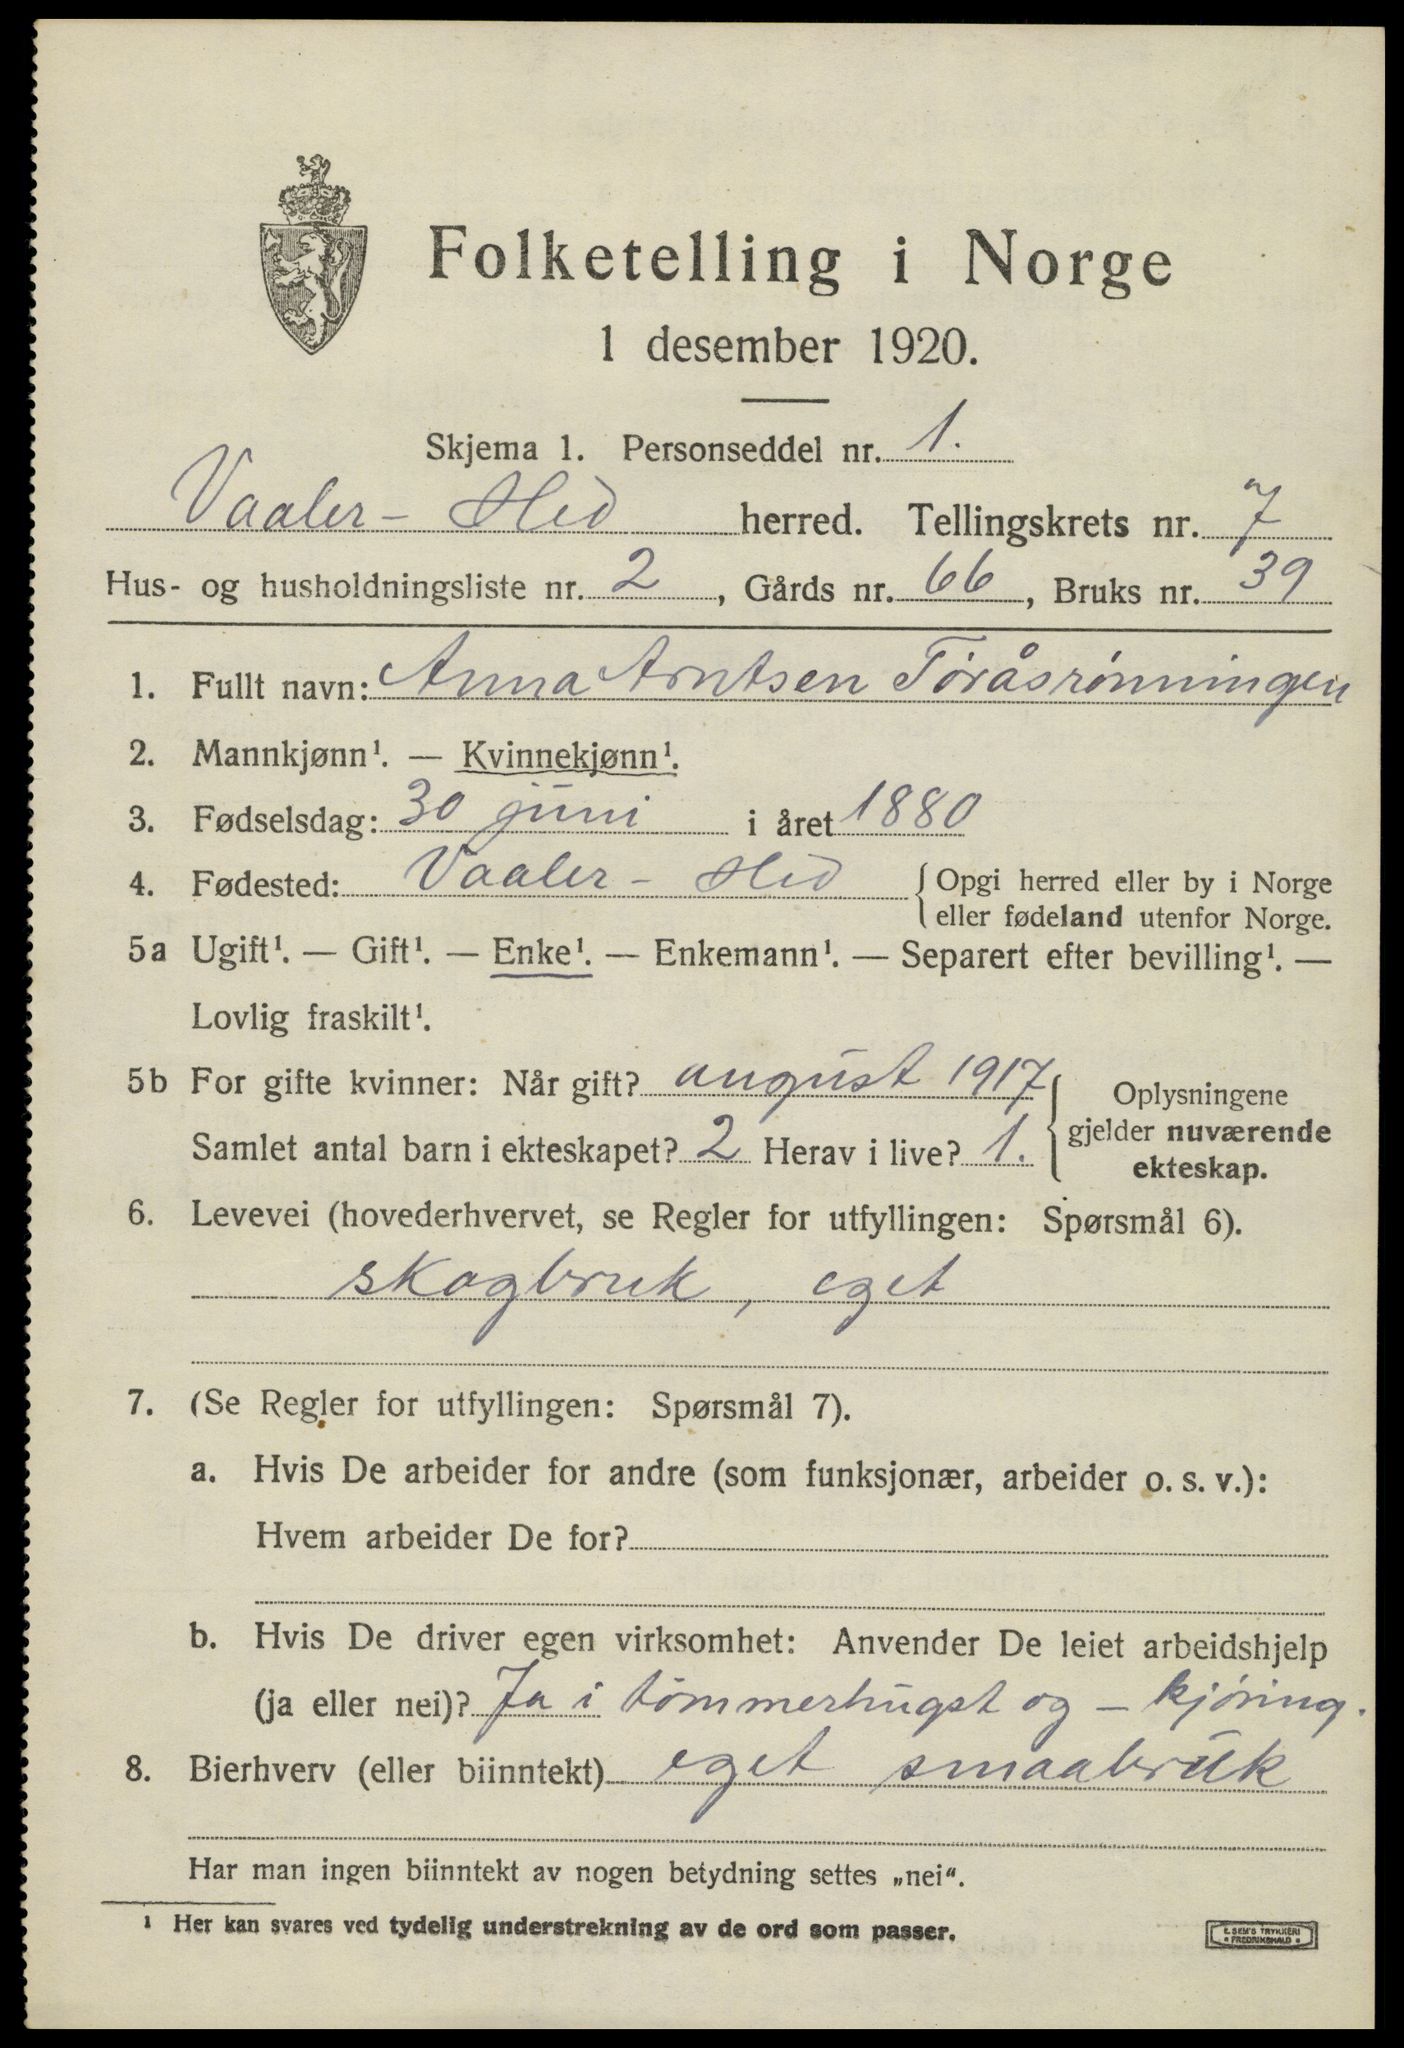 Folketelling i Norge
1 desember 1920.
Skjema 1. Personseddel nr. 1.
Vaaler - Hed herred. Tellingskrets nr. 7
Hus- og husholdningsliste nr. 2, Gårds nr. 66, Bruks nr. 39
1. Fullt navn: Anna Arntsen Töråsrönningen
2. Mannkjønn¹. — Kvinnekjønn¹.
3. Fødselsdag: 30 juni i året 1880
4. Fødested: Vaaler - Hed {Opgi herred eller by i Norge
eller fødeland utenfor Norge.
5a Ugift¹. — Gift¹. — Enke¹. — Enkemann¹. — Separert efter bevilling¹. —
Lovlig fraskilt¹.
5b For gifte kvinner: Når gift? august 1917
Samlet antal barn i ekteskapet? 2 Herav i live? 1.
Oplysningene
gjelder nuværende
ekteskap.
6. Levevei (hovederhvervet, se Regler for utfyllingen: Spørsmål 6).
skogbruk, eget
7. (Se Regler for utfyllingen: Spørsmål 7).
a. Hvis De arbeider for andre (som funksjonær, arbeider o. s. v.):
Hvem arbeider De for?
b. Hvis De driver egen virksomhet: Anvender De leiet arbeidshjelp
(ja eller nei)? Ja i tömmerhugst og - kjöring.
8. Bierhverv (eller biinntekt) eget smaabruk
Har man ingen biinntekt av nogen betydning settes „nei“.
¹ Her kan svares ved tydelig understrekning av de ord som passer.
E. SEM'S TRYKKERI
FREDRIKSHALD